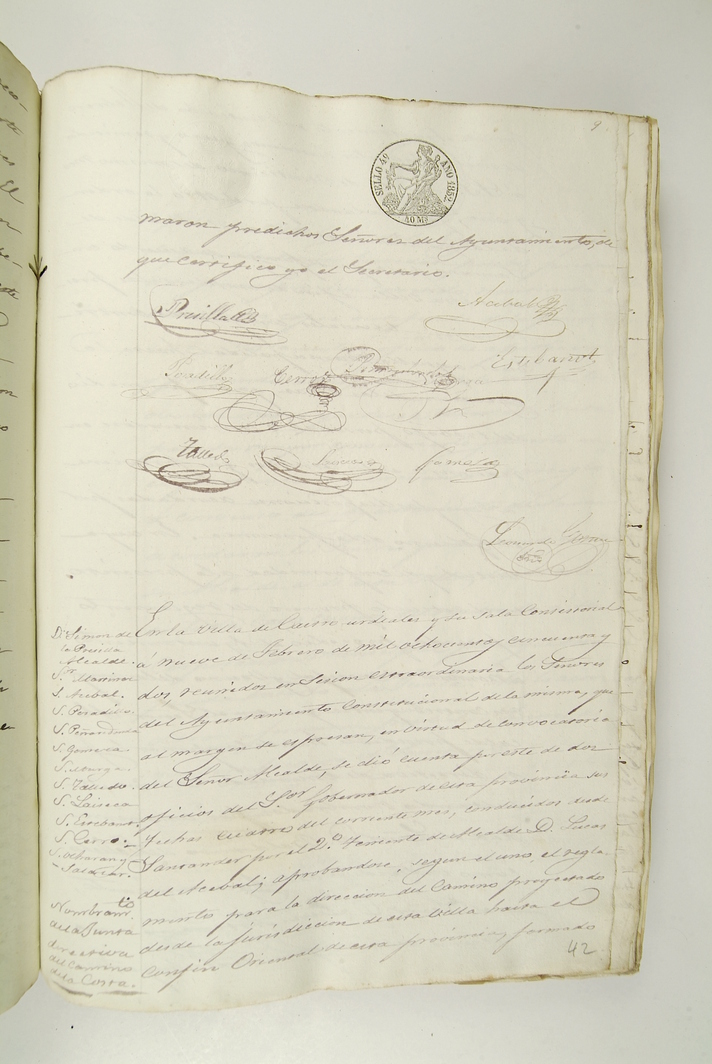 9
SELLO 4º AÑO 1852
40 Ms
maron predichos Señores del Ayuntamiento, de
que certifico yo el Secretario.
Presilla
Acebal
Estebanot
Talledo
Gomeza
Leonardo
Dn Simon de
la Presilla
Alcalde.
S. Acebal.
S. Peradilla
S. Gomeza
S. Talledo.
S. Laiseca
S. Esteban
S. Cerro.
S. Ocharan y
Salazar.
Nombramto
de la Junta
directiva
del Camino
de la Costa.
En la Villa de Castro urdiales y su Sala Consistorial
á nueve de Febrero de mil ochocientos y cincuenta y
dos, reunidos en Sesion extraordinaria los Señores
del Ayuntamiento Constitucional de la misma, que
al margen se espresan, en virtud de convocatoria
del Señor Alcalde, se dió cuenta por este de dos
oficios del Sor Gobernador de esta provincia sus
fechas cuatro del corriente mes, conducidos desde
Santander por el 2º Teniente de Alcalde D. Lucas
del Acebal; aprobandose, segun el uno, el regla-
mento para la direccion del Camino proyectado
desde la jurisdiccion de esta Villa hasta el
confin Oriental de esta provincia, formado
42